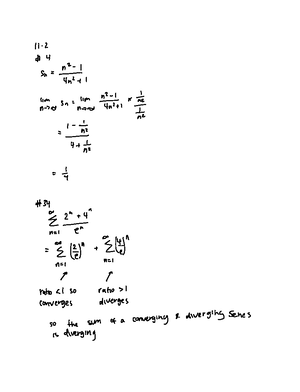 11.2
# 4
Sn = n² - 1 / 4n² + 1
lim n→∞ Sn = lim n→∞ n² - 1 / 4n² + 1 × 1/n² / 1/n²
= 1 - 1/n² / 4 + 1/n²
= 1/4
# 34
∞ Σ n=1 2ⁿ + 4ⁿ / eⁿ
= ∞ Σ n=1 (2/e)ⁿ + ∞ Σ n=1 (4/e)ⁿ
ratio < 1 so ratio > 1
converges diverges
so the sum of a converging & diverging series
is diverging